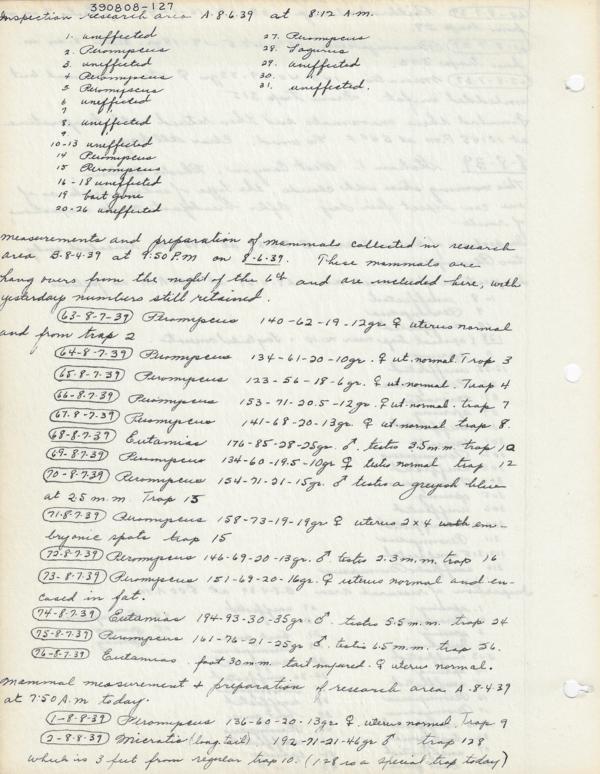 390808-127
Inspection research area A-8-6-39 at 8:12 A.m.
1. uneffected
2. Peromyscus
3. uneffected
4 Peromyscus
5 Peromyscus
6 uneffected
7 "
8. uneffected
9 "
10-13 uneffected
14 Peromyscus
15 Peromyscus
16-18 uneffected
19 bait gone
20-26 uneffected
27. Peromyscus
28. Lagurus
29. uneffected
30. "
31. uneffected.
Measurements and preparation of mammals collected in research
area B-8-4-39 at 9:50 P.M on 8-6-39. These mammals are
hang overs from the night of the 6th and are included here, with
yesterday numbers still retained.
63-8-7-39 Peromyscus 140-62-19-12gr ♀ uterus normal
and from trap 2
64-8-7-39 Peromyscus 134-61-20-10gr. ♀ ut. normal. Trap 3
65-8-7-39 Peromyscus 123-56-18-6gr. ♀ ut. normal. Trap 4
66-8-7-39 Peromyscus 153-71-20.5-12gr. ♀ ut. normal. trap 7
67-8-7-39 Peromyscus 141-68-20-13gr. ♀ ut. normal trap 8.
68-8-7-39 Eutamias 176-85-28-25gr. ♂. testis 3.5 m.m. trap 10
69-8-7-39 Peromyscus 134-60-19.5-10gr ♀ testis normal trap 12
70-8-7-39 Peromyscus 154-71-21-15gr. ♂ testes a greyish blue
at 2.5 m.m. Trap 15
71-8-7-39 Peromyscus 158-73-19-19gr ♀ uterus 2x4 with em-
bryonic spots trap 15
72-8-7-39 Peromyscus 146-69-20-13gr. ♂. testis 2.3 m.m. trap 16
73-8-7-39 Peromyscus 151-69-20-16gr. ♀ uterus normal and en-
cased in fat.
74-8-7-39 Eutamias 194-93-30-35gr. ♂ testis 5.5 m.m. trap 24
75-8-7-39 Peromyscus 161-76-21-25gr ♂. testis 6.5 m.m. trap 26.
76-8-7-39 Eutamias. foot 30 m.m tail injured. ♀ uterus normal.
Mammal measurement & preparation of research area A-8-4-39
at 7:50 A.m today.
1-8-8-39 Peromyscus 136-60-20-13gr ♀. uterus normal. Trap 9
2-8-8-39 Microtis (long tail) 192-71-21-46gr ♂ trap 128
which is 3 feet from regular trap 10. (128 is a special trap today)